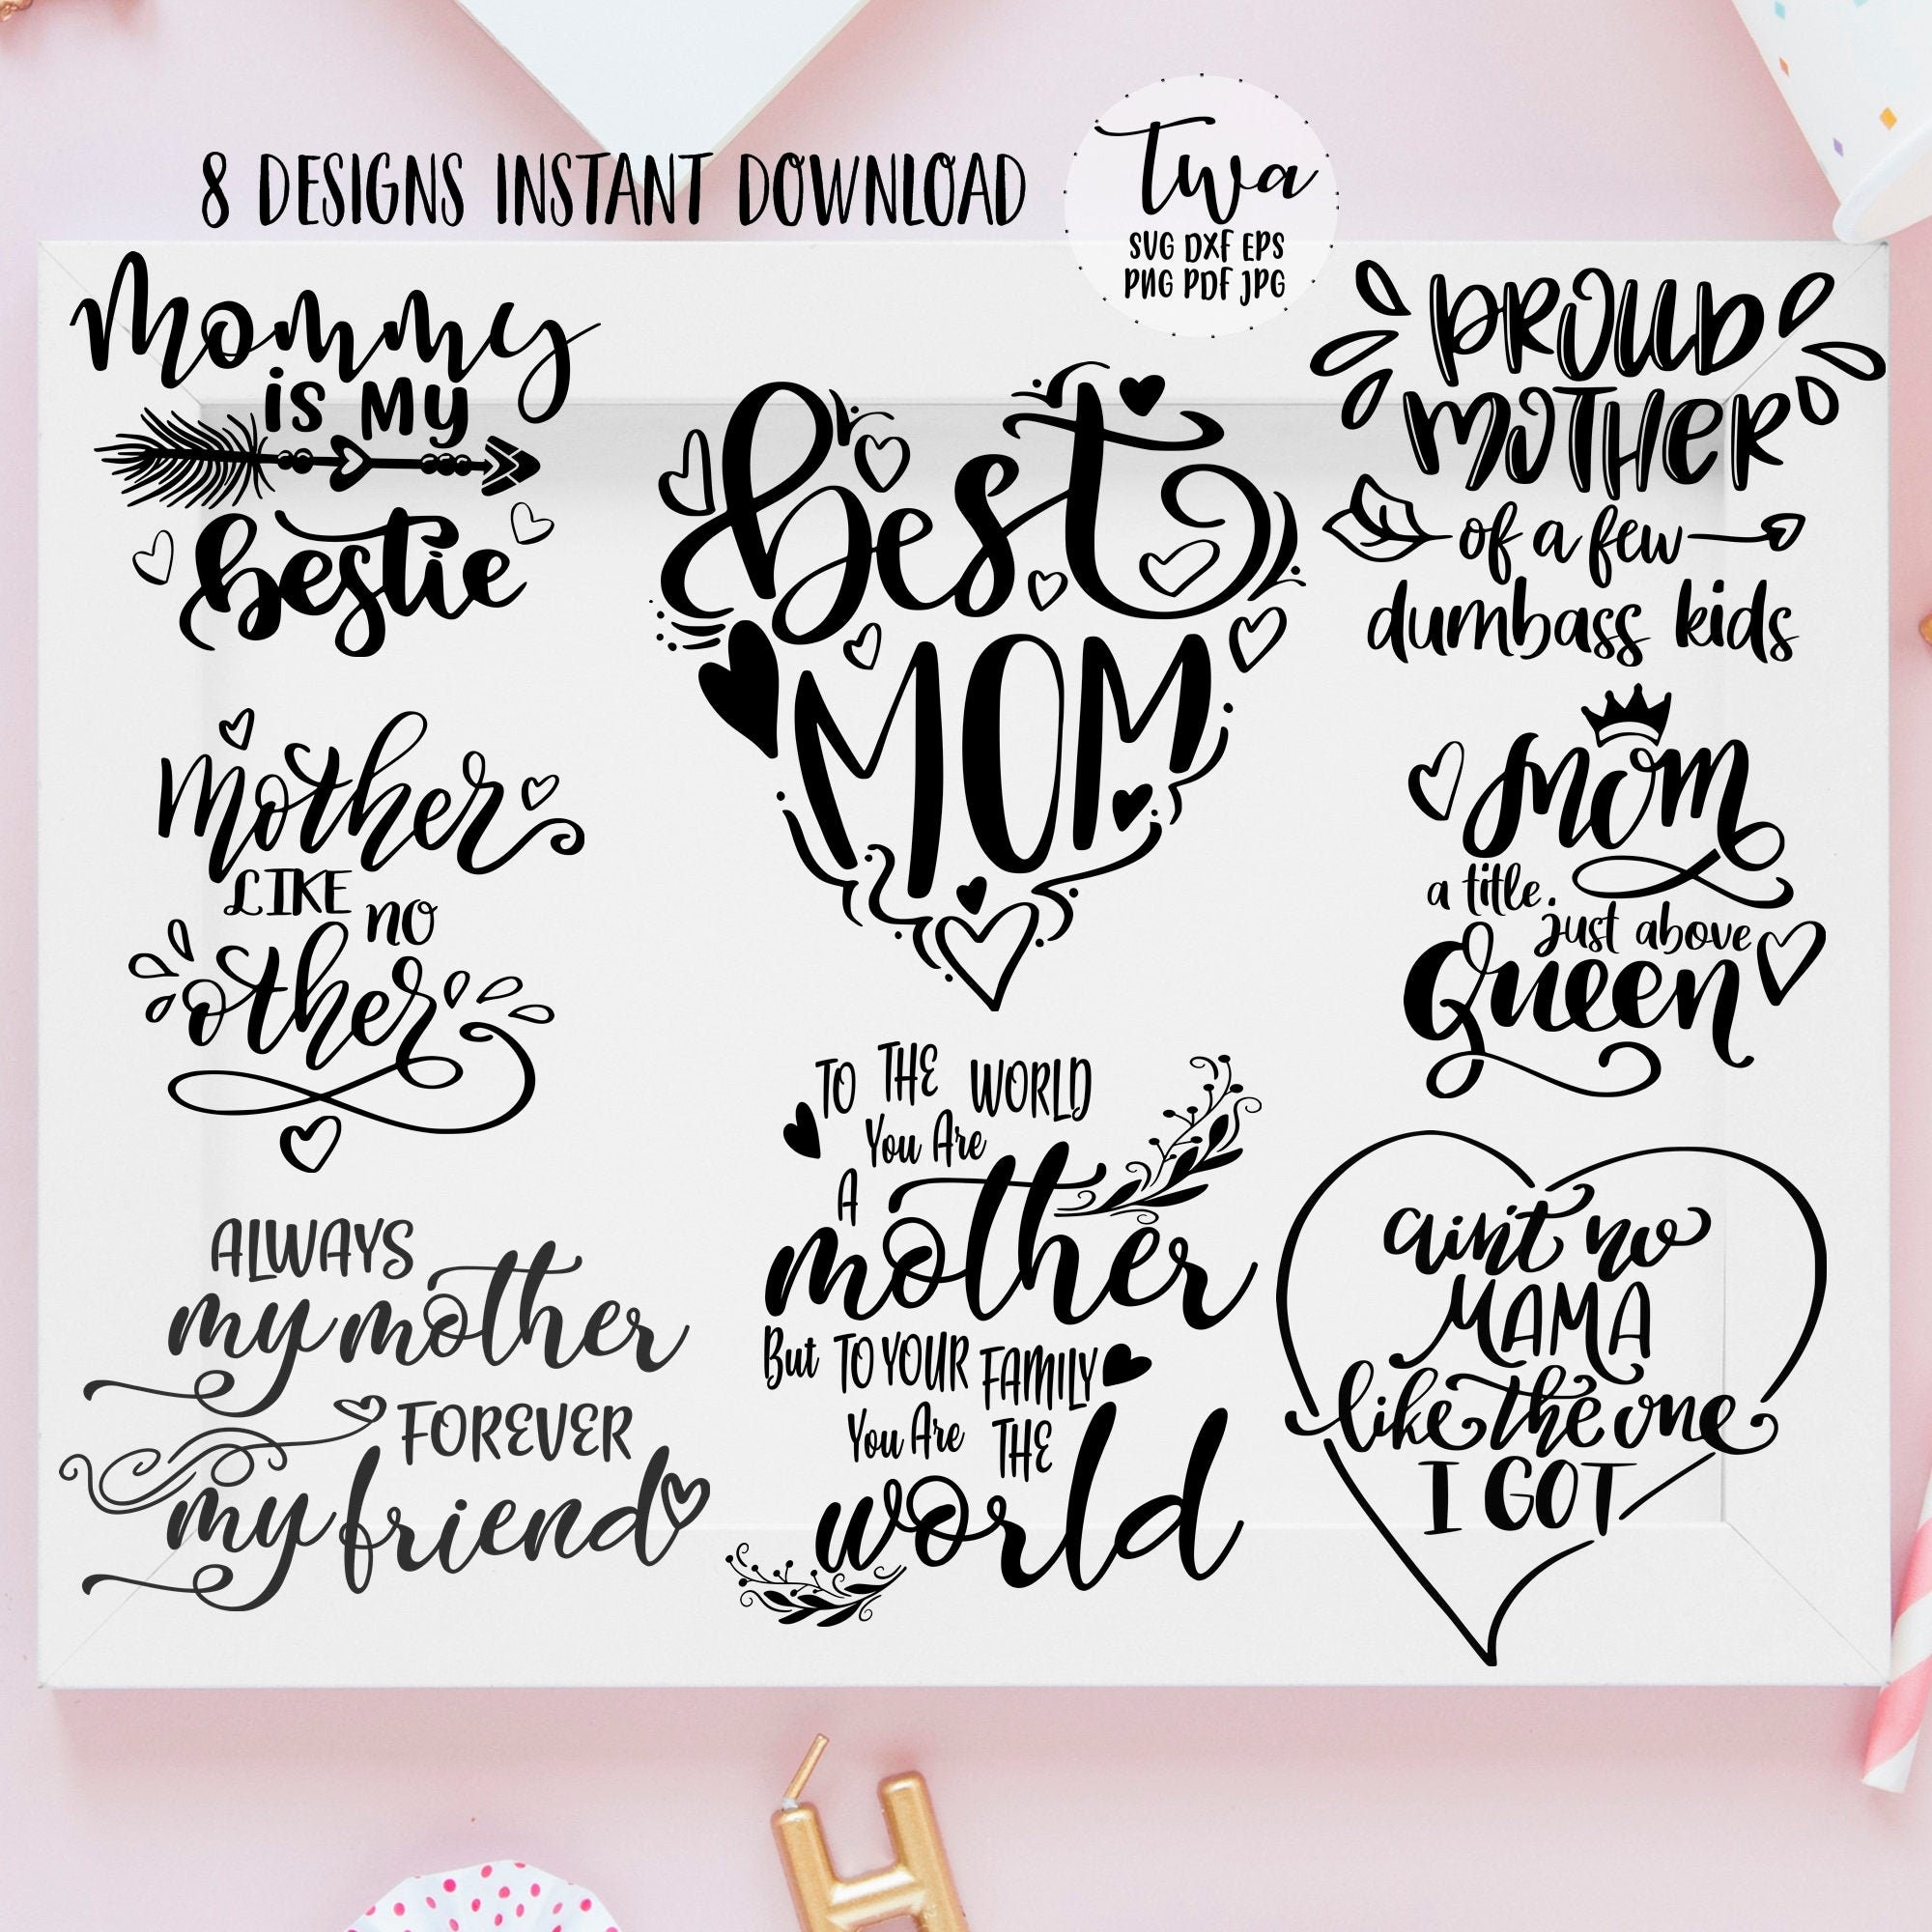 8 DESIGNS INSTANT DOWNLOAD
twa
SVG DXF EPS
PNG PDF JPG
Mommy
is My
bestie
best
MOM
PROUD
MOTHER
of a few
dumbass kids
Mother
LIKE no
other
Mom
a title
just above
Queen
ALWAYS
my mother
FOREVER
my friend
TO THE WORLD
You Are
A
mother
But TO YOUR FAMILY
You Are THE
world
ain't no
MAMA
like the one
I GOT
H